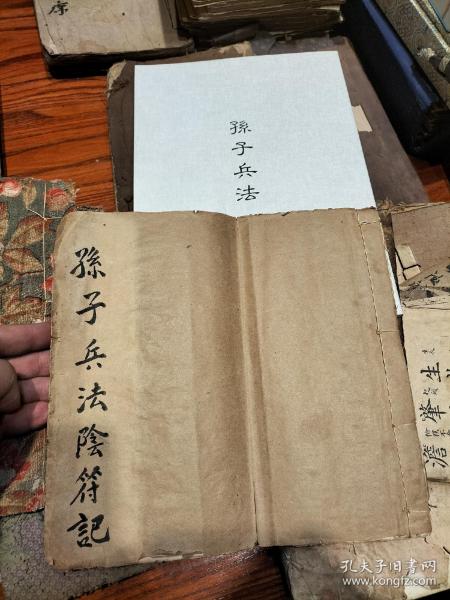 序
孫子兵法
孫子兵法陰符記
生
肇
澹
孔夫子旧书网
www.kongfz.com